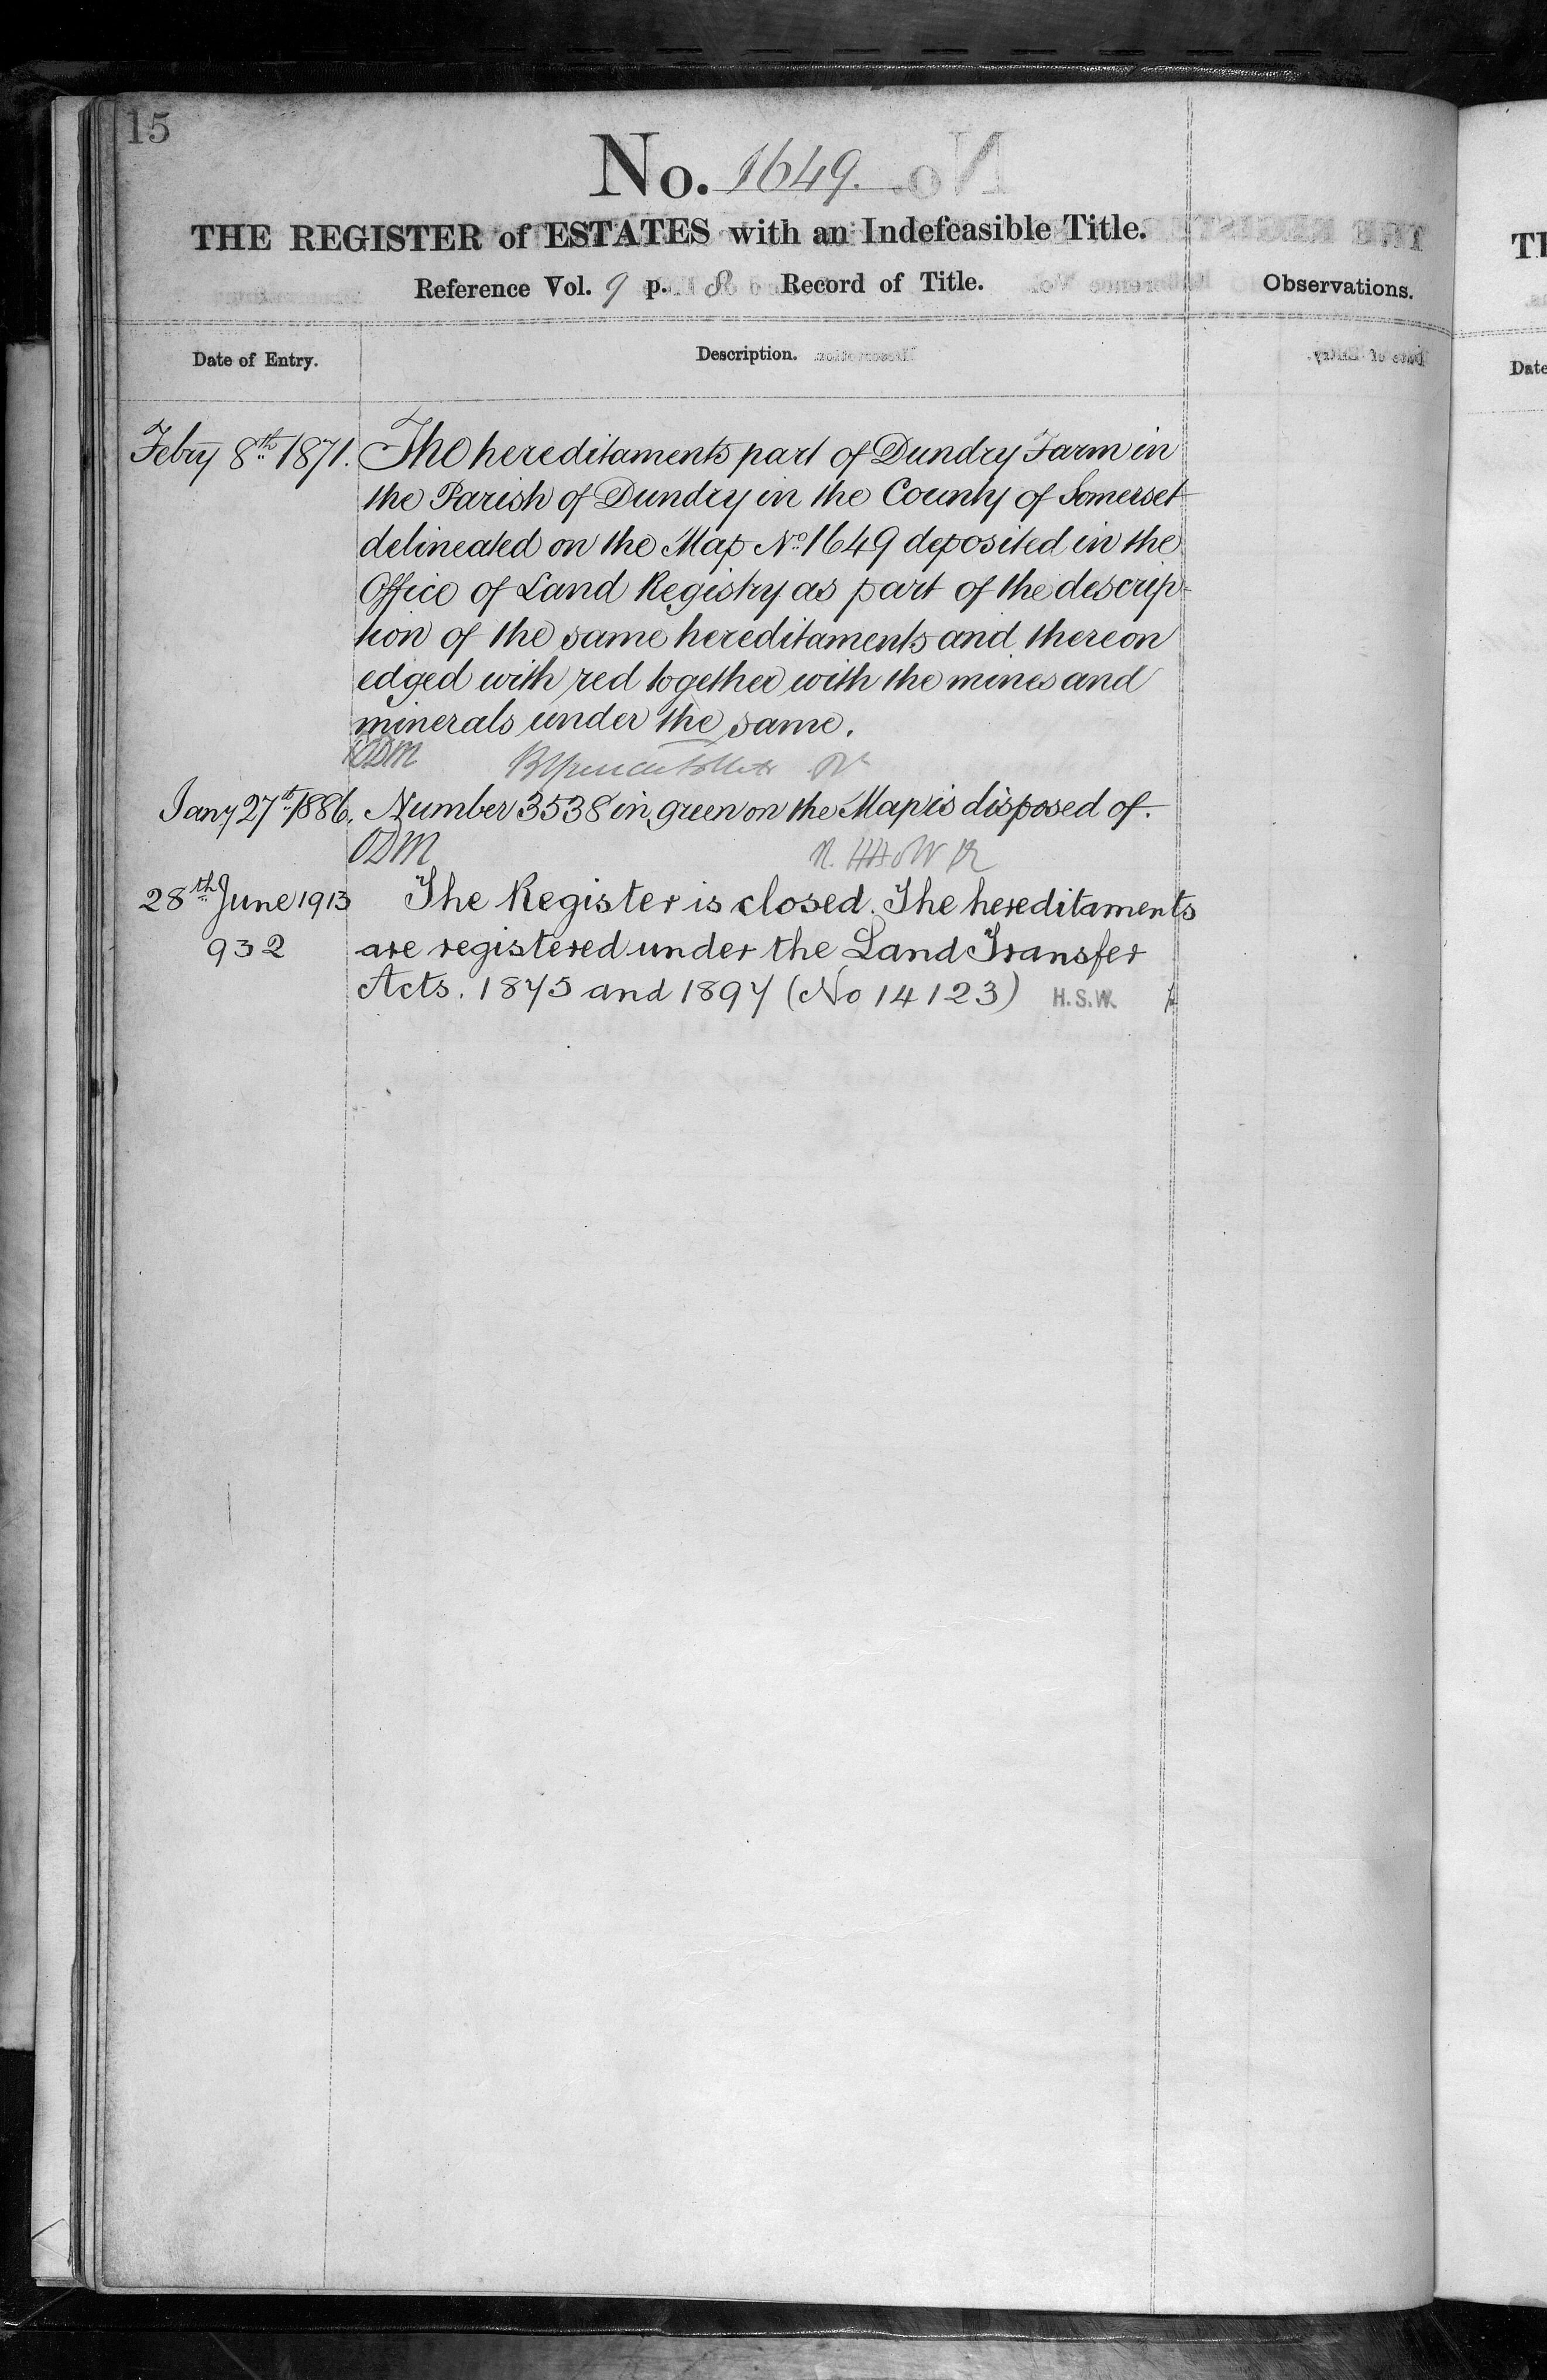 15
No. 1649.
THE REGISTER of ESTATES with an Indefeasible Title.
Reference Vol. 9 p. 8 Record of Title.
Observations.
Date of Entry.
Description.
Febry 8th 1871. The hereditaments part of Dundry Farm in
the Parish of Dundry in the County of Somerset
delineated on the Map No. 1649 deposited in the
Office of Land Registry as part of the descrip-
tion of the same hereditaments and thereon
edged with red together with the mines and
minerals under the same.
ODM
Jany 27th 1886. Number 3538 in green on the Map is disposed of.
ODM
28th June 1913 The Register is closed. The hereditaments
932 are registered under the Land Transfer
Acts. 1875 and 1897 (No 14123) H.S.W.
Date